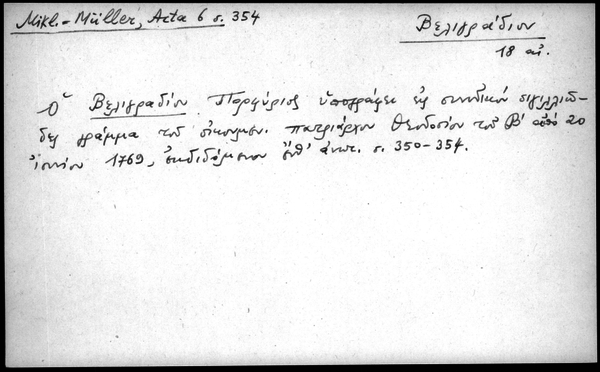 Mikl.-Müller, Acta 6 σ. 354
Βελιγράδιον
18 αἰ.
Ὁ Βελιγραδίου Πορφύριος ὑπογράφει εἰς συνοδικὸν σιγιλλιῶ-
δες γράμμα τοῦ οἰκουμεν. πατριάρχου Θεοδοσίου τοῦ Β' ἀπὸ 20
ἰουνίου 1769, ἐκδιδόμενον ἔνθ' ἀνωτ. σ. 350-354.